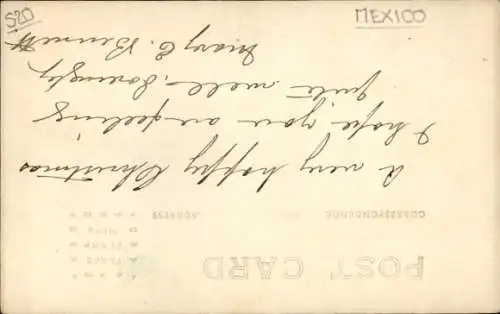 MEXICO
S20
POST CARD
CORRESPONDENCE
ADDRESS
PLACE
STAMP
HERE
A very happy Christmas
I hope you are feeling
quite well. Lovingly,
Mary E. Bennett